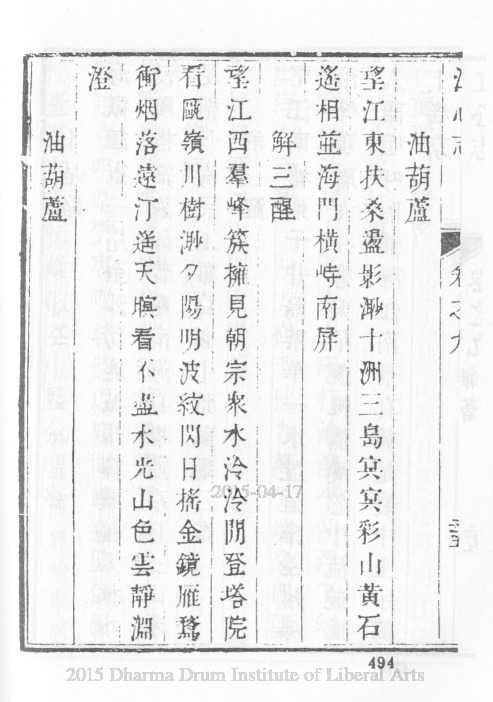 江心志
卷之九
油葫蘆
望江東扶桑盪影渺十洲三島㝠㝠彩山黃石
遙相並海門橫峙南屏
解三酲
望江西羣峰簇擁見朝宗衆水泠泠閒登塔院
看甌嶺川樹渺夕陽明波紋閃日搖金鏡雁鶩
衝烟落遠汀遥天暝看不盡水光山色雲靜淵
澄
油葫蘆
2015-04-17
494
2015 Dharma Drum Institute of Liberal Arts